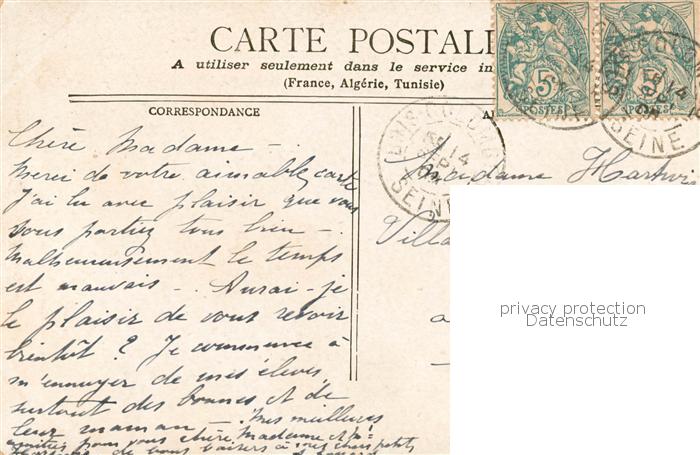 CARTE POSTALE
A utiliser seulement dans le service in
(France, Algérie, Tunisie)
CORRESPONDANCE
5
POSTES
POSTES
SEINE
14
SEINE
Chère Madame - .
Merci de votre aimable carte
J'ai lu avec plaisir que vous
vous portiez tous bien - .
Malheureusement le temps
est mauvais - . Aurai-je
le plaisir de vous revoir
bientôt ? Je commence à
m'ennuyer de mes élèves,
surtout des bonnes et de
leur maman - . Mes meilleures
amitiés pour vous chère Madame et
de bons baisers à vos chers petits
Madame Hartwi
Villa
a
privacy protection
Datenschutz